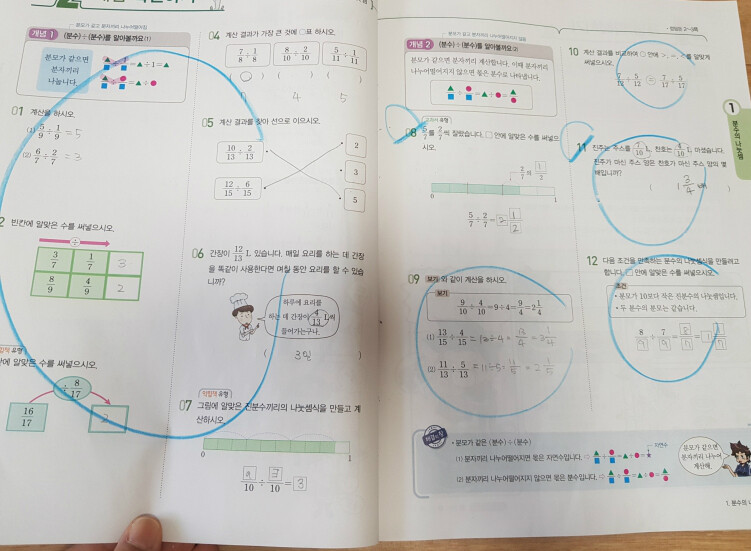 분모가 같고 분자끼리 나누어떨어짐
개념 1 (분수)÷(분수)를 알아볼까요(1)
분모가 같으면
분자끼리
나눕니다.
▲/■ ÷ 1/■ = ▲÷1=▲
▲/■ ÷ ●/■ = ▲÷●
01 계산을 하시오.
(1) 5/9 ÷ 1/9 = 5
(2) 6/7 ÷ 2/7 = 3
2 빈칸에 알맞은 수를 써넣으시오.
÷
3/7 1/7 3
8/9 4/9 2
유형
에 알맞은 수를 써넣으시오.
÷ 8/17
16/17 2
04 계산 결과가 가장 큰 것에 □표 하시오.
7/8 ÷ 1/8 8/10 ÷ 2/10 5/11 ÷ 1/11
( ○ ) ( ) ( )
4 5
05 계산 결과를 찾아 선으로 이으시오.
10/13 ÷ 2/13 2
3
12/15 ÷ 6/15 5
06 간장이 12/13 L 있습니다. 매일 요리를 하는 데 간장
을 똑같이 사용한다면 며칠 동안 요리를 할 수 있습
니까?
하루에 요리를
하는 데 간장이 4/13 L씩
들어가는구나.
( 3일
익힘책 유형
07 그림에 알맞은 진분수끼리의 나눗셈식을 만들고 계
산하시오.
0 1
9/10 ÷ 3/10 = 3
분모가 같고 분자끼리 나누어떨어지지 않음
개념 2 (분수)÷(분수)를 알아볼까요(2)
분모가 같으면 분자끼리 계산합니다. 이때 분자끼리
나누어떨어지지 않으면 몫은 분수로 나타냅니다.
▲/■ ÷ ●/■ = ▲÷● = ▲/●
교과서 유형
08 5/7를 2/7씩 잘랐습니다. □ 안에 알맞은 수를 써넣으
시오.
2/7의 1/2
0 1
5/7 ÷ 2/7 = 2 1/2
09 보기 와 같이 계산을 하시오.
보기
9/10 ÷ 4/10 = 9÷4 = 9/4 = 2 1/4
(1) 13/15 ÷ 4/15 = 13÷4 = 13/4 = 3 1/4
(2) 11/13 ÷ 5/13 = 11÷5 = 11/5 = 2 1/5
10 계산 결과를 비교하여 ○ 안에 >, =, <를 알맞게
써넣으시오.
7/12 ÷ 5/12 = 7/17 ÷ 5/17
11 진주는 주스를 7/10 L, 찬호는 4/10 L 마셨습니다.
진주가 마신 주스 양은 찬호가 마신 주스 양의 몇
배입니까?
( 1 3/4 배 )
12 다음 조건을 만족하는 분수의 나눗셈식을 만들려고
합니다. □ 안에 알맞은 수를 써넣으시오.
조건
• 분모가 10보다 작은 진분수의 나눗셈입니다.
• 두 분수의 분모는 같습니다.
8/9 ÷ 7/9 = 8/7 = 1 1/7
• 분모가 같은 (분수)÷(분수)
(1) 분자끼리 나누어떨어지면 몫은 자연수입니다. ⇨ ▲/■ ÷ ●/■ = ▲÷● = ★
자연수
(2) 분자끼리 나누어떨어지지 않으면 몫은 분수입니다. ⇨ ▲/■ ÷ ●/■ = ▲÷● = ▲/●
분모가 같으면
분자끼리 나누어
계산해.
1
분수의 나눗셈
1. 분수의 나